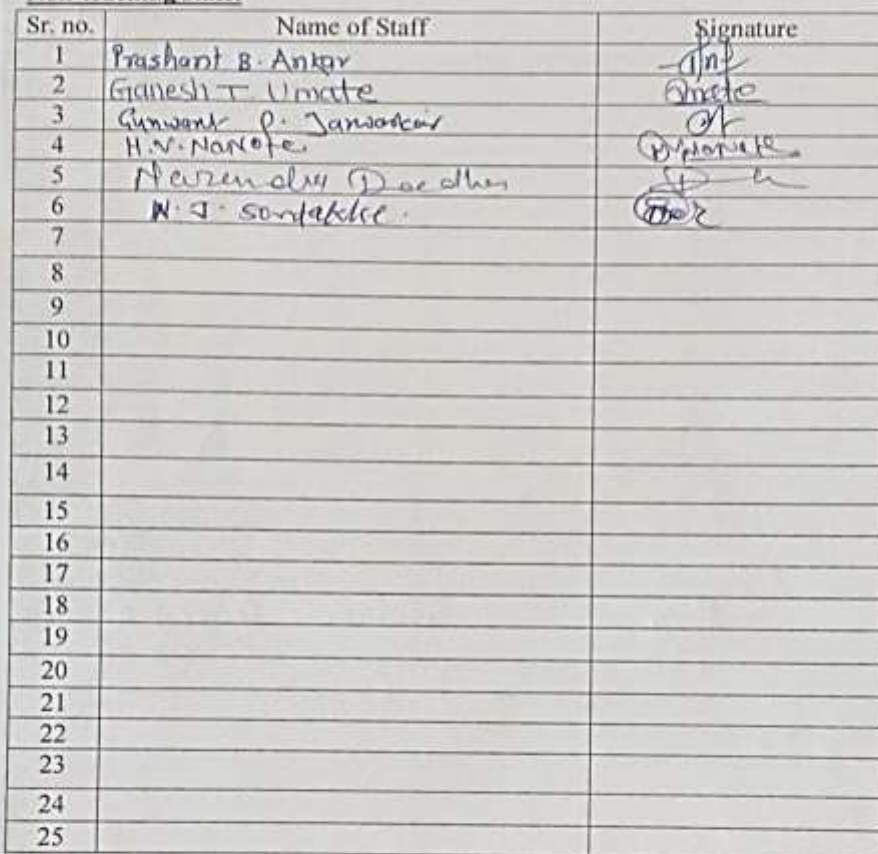 Sr. no. Name of Staff Signature
1 Prashant B. Ankar
2 Ganesh T Umate Umate
3 Gunwant P. Janwarkar
4 H.V. NaNote.
5 Narendra Deodhar
6 N. J. Sontakke.
7
8
9
10
11
12
13
14
15
16
17
18
19
20
21
22
23
24
25